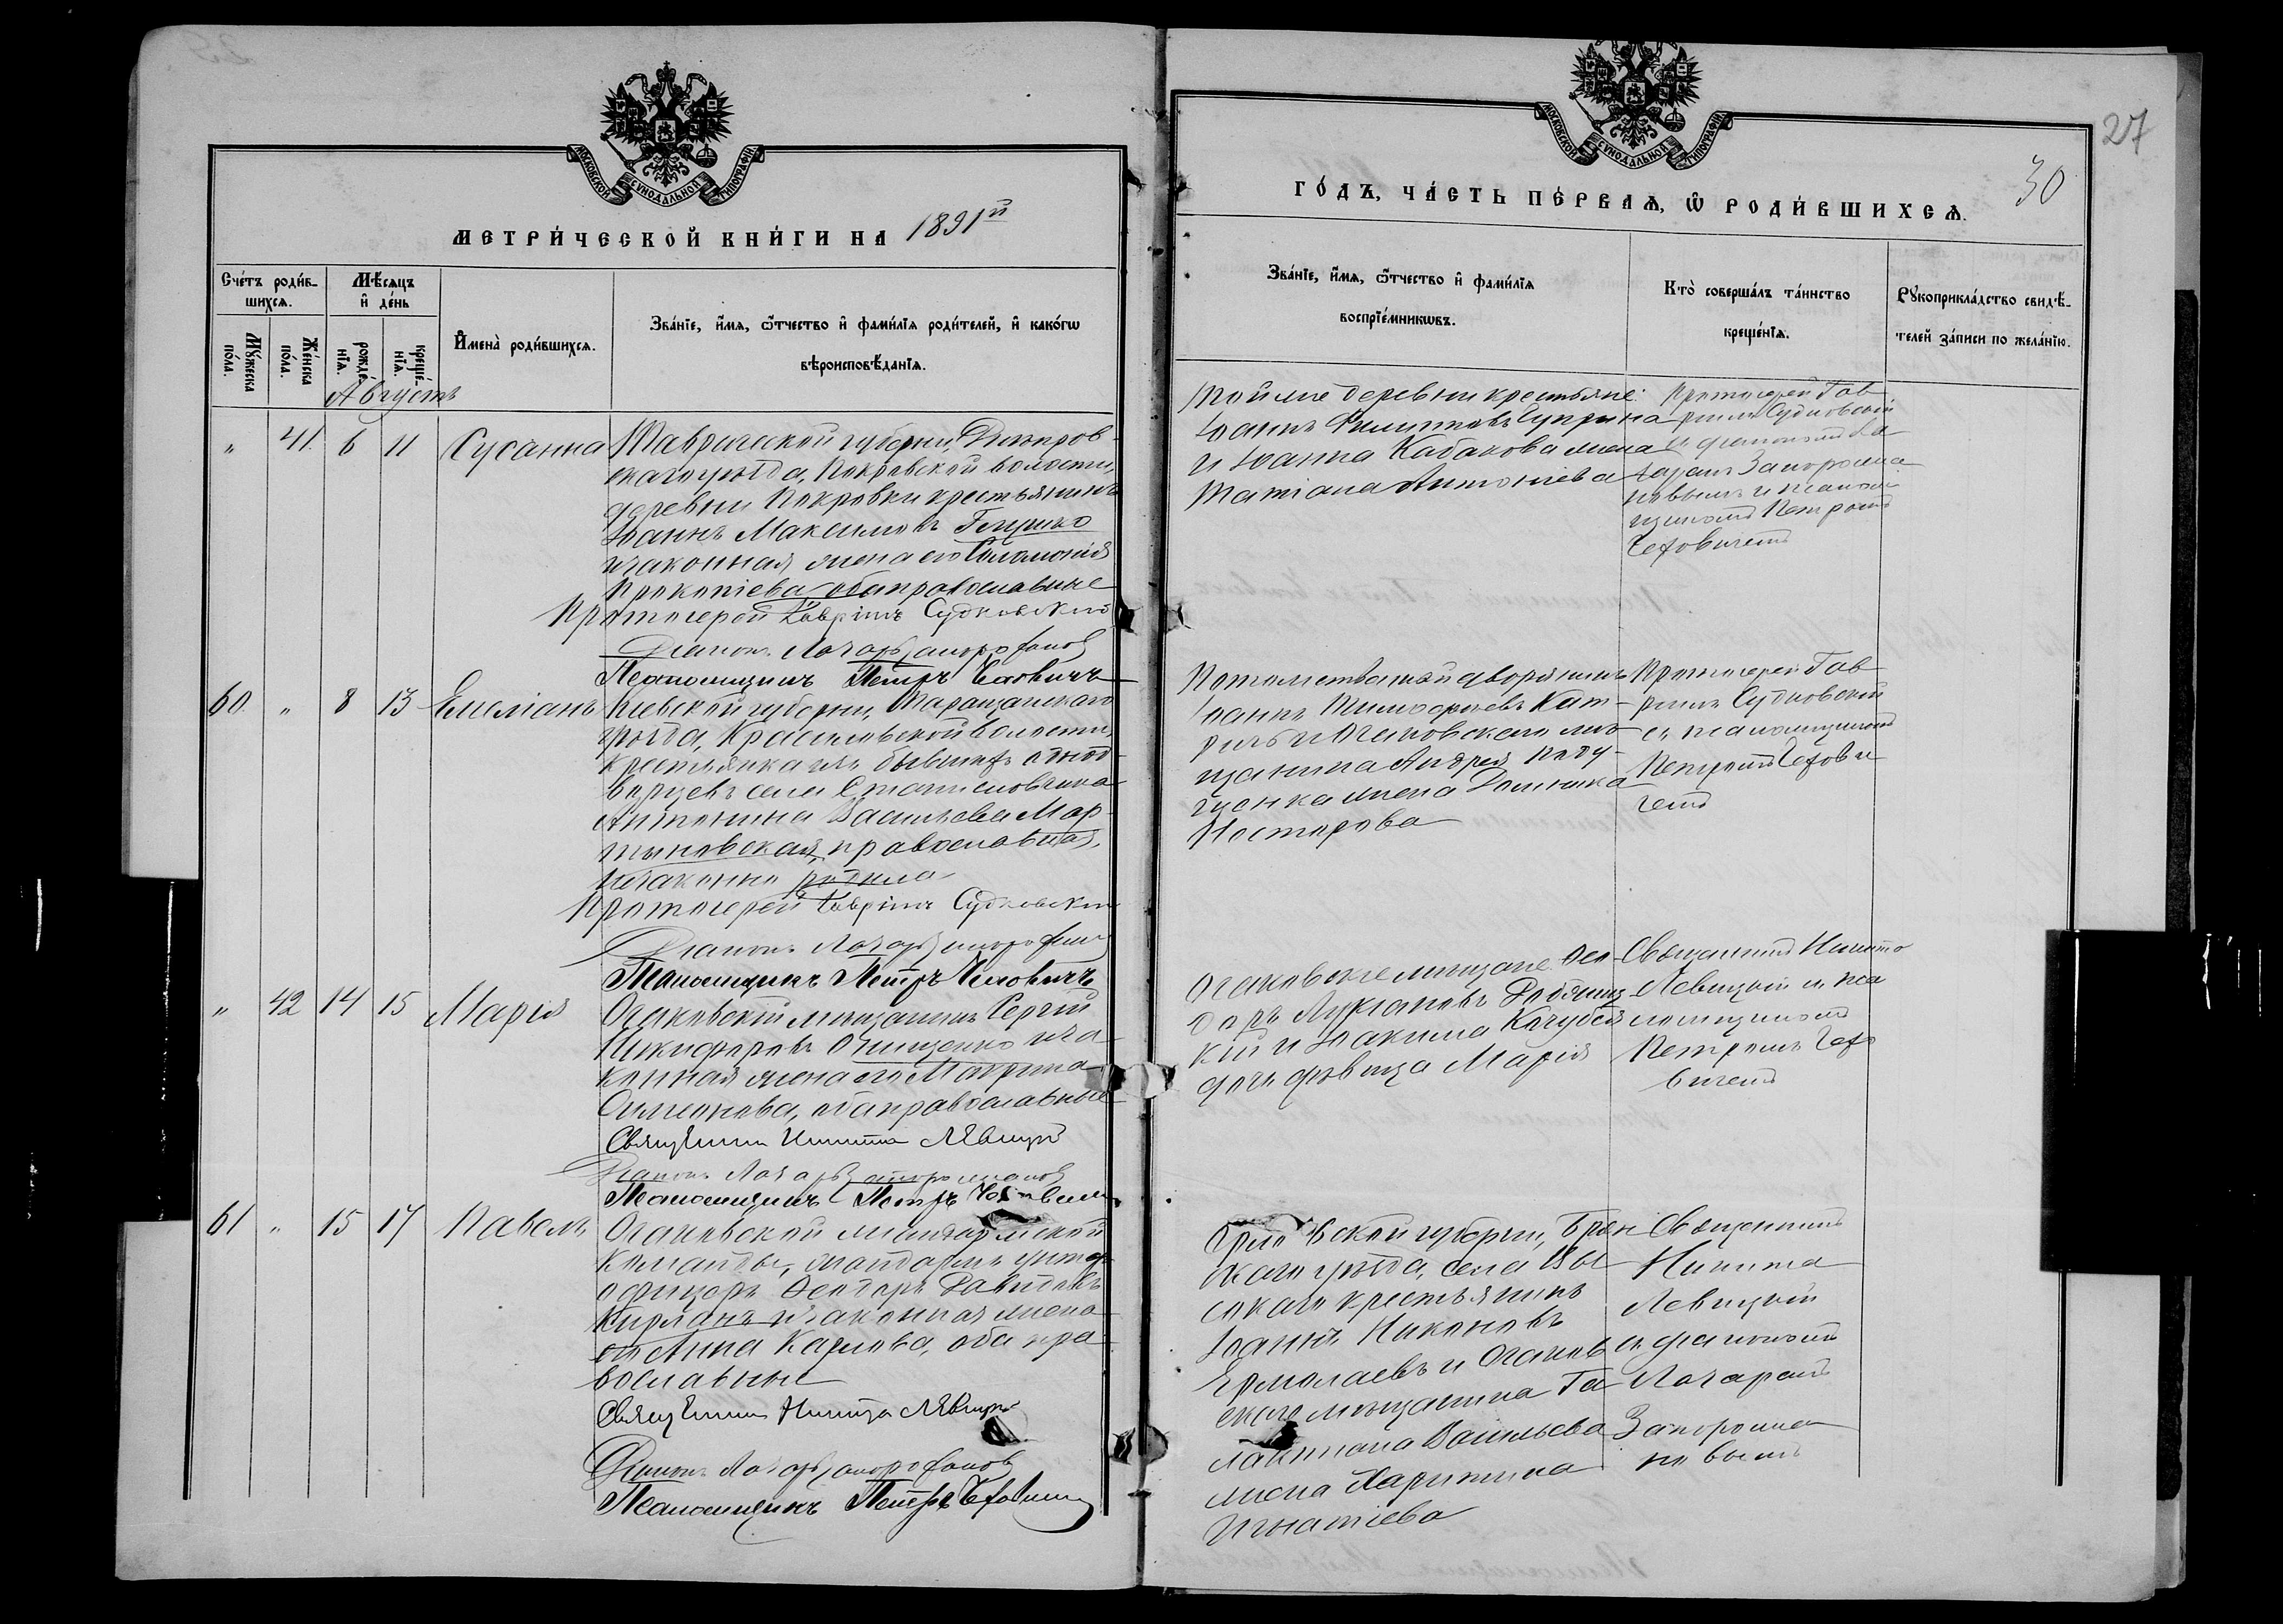 МОСКОВСКОЙ СѴНОДАЛЬНОЙ ТИПОГРАФІИ
МЕТРИ́ЧЕСКОЙ КНИ́ГИ НА 1891й
Сче́тъ роди́в-
шихся.
Мѣ́сяцъ
и҆ де́нь
Му́жеска
по́ла.
Же́нска
по́ла.
рожде́-
нїя.
креще́-
нїя.
И҆мена̀ роди́вшихся.
Зва́нїе, и҆́мя, ѻ҆́тчество и҆ фами́лїя роди́телей, и҆ како́гѡ
вѣроисповѣ́данїя.
Августъ
" 41 6 11 Сусанна Таврической губерніи, Днѣпров-
скаго уѣзда, Покровской волости,
деревни Покровки крестьянинъ
Іоаннъ Максимовъ
и законная жена его Соломонія
Прокопіева, оба православные
Протоіерей Гавріилъ Судковскій
Діаконъ Лазарь Запорожановъ
Псаломщикъ Петръ Чеховичъ
60 " 8 13 Емеліанъ Кіевской губерніи, Таращанскаго
уѣзда, Красиловской волости,
крестьянка изъ бывшихъ однод-
ворцевъ села Станиславчика
Антонина Васильева Мар-
тыновская, православная,
незаконно родила
Протоіерей Гавріилъ Судковскій
Діаконъ Лазарь Запорожановъ
Псаломщикъ Петръ Чеховичъ
" 42 14 15 Марія Очаковскій мѣщанинъ Сергій
Никифоровъ Онищенко и за-
конная жена его Матрона
Симеонова, оба православные
Священникъ Никита Лѣвицкій
Діаконъ Лазарь Запорожановъ
Псаломщикъ Петръ Чеховичъ
61 " 15 17 Павелъ Очаковской жандармской
команды, жандармъ унтер-
офицеръ Ѳеодоръ Давидовъ
Кирланъ и законная жена
его Анна Карпова, оба пра-
вославные
Священникъ Никита Лѣвицкій
Діаконъ Лазарь Запорожановъ
Псаломщикъ Петръ Чеховичъ
27
МОСКОВСКОЙ СѴНОДАЛЬНОЙ ТИПОГРАФІИ
ГО́ДЪ, ЧА́СТЬ ПЕ́РВАЯ, Ѡ҆ РОДИ́ВШИХСЯ. 30
Зва́нїе, и҆́мя, ѻ҆́тчество и҆ фами́лїя
воспрїе́мникѡвъ.
Кто̀ соверша́лъ та́инство
креще́нїя.
Рꙋкоприкла́дство свидѣ́-
телей за́писи по жела́нїю.
той же деревни крестьяне:
Іоаннъ Филипповъ Чуприна
и Іоанна Кабакова жена
Татіана Антоніева
Протоіерей Гав-
ріилъ Судковскій
съ діакономъ Ла-
заремъ Запорожа-
новымъ и псалом-
щикомъ Петромъ
Чеховичемъ
Потомственный дворянинъ
Іоаннъ Тимофеевъ Кат-
ричъ и Очаковскаго мѣ-
щанина Андрея
жена Домника
Несторова
Протоіерей Гав-
ріилъ Судковскій
съ псаломщикомъ
Петромъ Чехови-
чемъ
Очаковские мѣщане: Ѳео-
доръ Лукіановъ
кій и Іоакима Кочубея
дочь дѣвица Марія
Священникъ Никита
Левицкій и пса-
ломщикомъ
Петромъ Чехо-
вичемъ
Орловской губерніи, Брян-
скаго уѣзда, села Вы-
сокаго крестьянинъ
Іоаннъ Никоновъ
Ермолаевъ и Очаков-
скаго мѣщанина Га-
лактіона Васильева
жена Харитина
Игнатіева
Священникъ
Никита
Левицкій
съ діакономъ
Лазаремъ
Запорожа-
новымъ